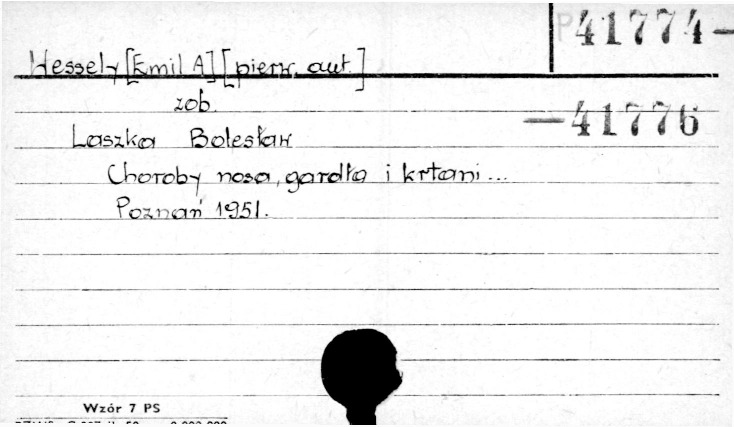 P 41774-
Hessely [Emil A] [pierw. aut.]
zob.
-41776
Laszka Bolesław
Choroby nosa, gardła i krtani...
Poznań 1951.
Wzór 7 PS